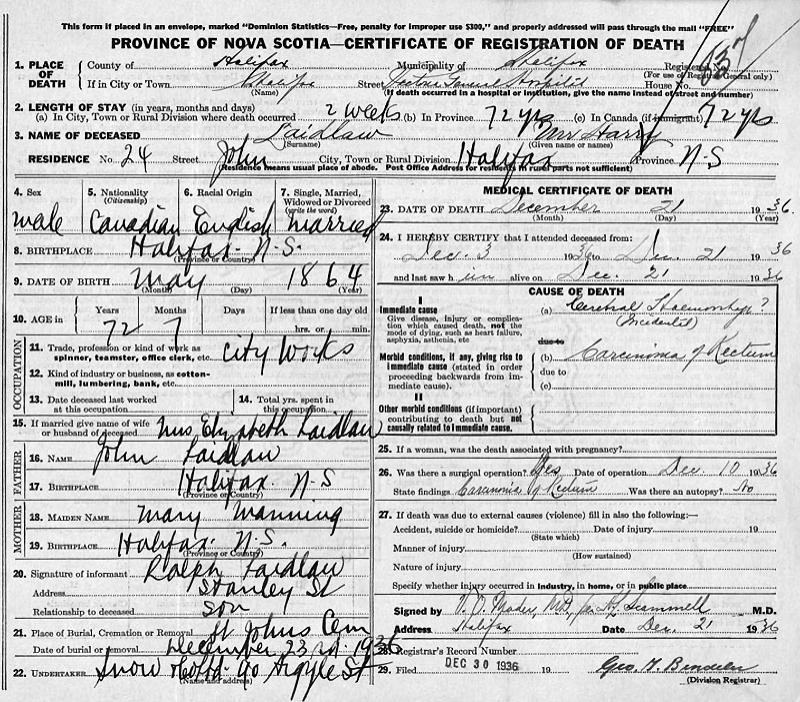 This form if placed in an envelope, marked "Dominion Statistics—Free, penalty for improper use $300," and properly addressed will pass through the mail "FREE"
PROVINCE OF NOVA SCOTIA—CERTIFICATE OF REGISTRATION OF DEATH
1. PLACE OF DEATH County of Halifax Municipality of Halifax Registered No.
(For use of Registrar General only)
If in City or Town Halifax Street Victoria General Hospital House No.
(Name) (If death occurred in a hospital or institution, give the name instead of street and number)
2. LENGTH OF STAY (in years, months and days)
(a) In City, Town or Rural Division where death occurred 2 weeks (b) In Province 72 yrs (c) In Canada (if immigrant) 72 yrs
3. NAME OF DECEASED Laidlaw Mr Harry
(Surname) (Given name or names)
RESIDENCE No. 24 Street John City, Town or Rural Division Halifax Province N-S
(Residence means usual place of abode. Post Office Address for residents in rural parts not sufficient)
4. Sex 5. Nationality 6. Racial Origin 7. Single, Married, Widowed or Divorced
(Citizenship) (write the word)
male Canadian English Married
8. BIRTHPLACE Halifax N.S.
(Province or Country)
9. DATE OF BIRTH May 1864
(Month) (Day) (Year)
10. AGE in Years Months Days If less than one day old
72 7 hrs. or min.
OCCUPATION
11. Trade, profession or kind of work as spinner, teamster, office clerk, etc. City Works
12. Kind of industry or business, as cotton-mill, lumbering, bank, etc.
13. Date deceased last worked at this occupation 14. Total yrs. spent in this occupation
15. If married give name of wife or husband of deceased Mrs Elizabeth Laidlaw
FATHER
16. NAME John Laidlaw
17. BIRTHPLACE Halifax N-S
(Province or Country)
MOTHER
18. MAIDEN NAME Mary Manning
19. BIRTHPLACE Halifax N.S.
(Province or Country)
20. Signature of informant Ralph Laidlaw
Address Stanley St
Relationship to deceased Son
21. Place of Burial, Cremation or Removal St Johns Cem
Date of burial or removal December 23rd. 1936
22. UNDERTAKER Snow 90 Argyle St
(Name and address)
MEDICAL CERTIFICATE OF DEATH
23. DATE OF DEATH December 21 1936.
(Month) (Day) (Year)
24. I HEREBY CERTIFY that I attended deceased from:
Dec. 3 1936 to Dec. 21 1936
and last saw him alive on Dec. 21 1936
CAUSE OF DEATH
I
Immediate cause
Give disease, injury or complication which caused death, not the mode of dying, such as heart failure, asphyxia, asthenia, etc
(a) Cerebral Haemorrhage?
(Incidental)
due to
Morbid conditions, if any, giving rise to immediate cause (stated in order proceeding backwards from immediate cause).
(b) Carcinoma of Rectum
due to
(c)
II
Other morbid conditions (if important) contributing to death but not causally related to immediate cause.
25. If a woman, was the death associated with pregnancy?
26. Was there a surgical operation? Yes Date of operation Dec. 10 1936
State findings Carcinoma of Rectum Was there an autopsy? No
27. If death was due to external causes (violence) fill in also the following:—
Accident, suicide or homicide? Date of injury 19
(State which)
Manner of injury
(How sustained)
Nature of injury
Specify whether injury occurred in industry, in home, or in public place
Signed by V. O. Mader, M.D., for H.L. Scammell M.D.
Address Halifax Date Dec. 21 1936
28. Registrar's Record Number
29. Filed DEC 30 1936 19
(Division Registrar)